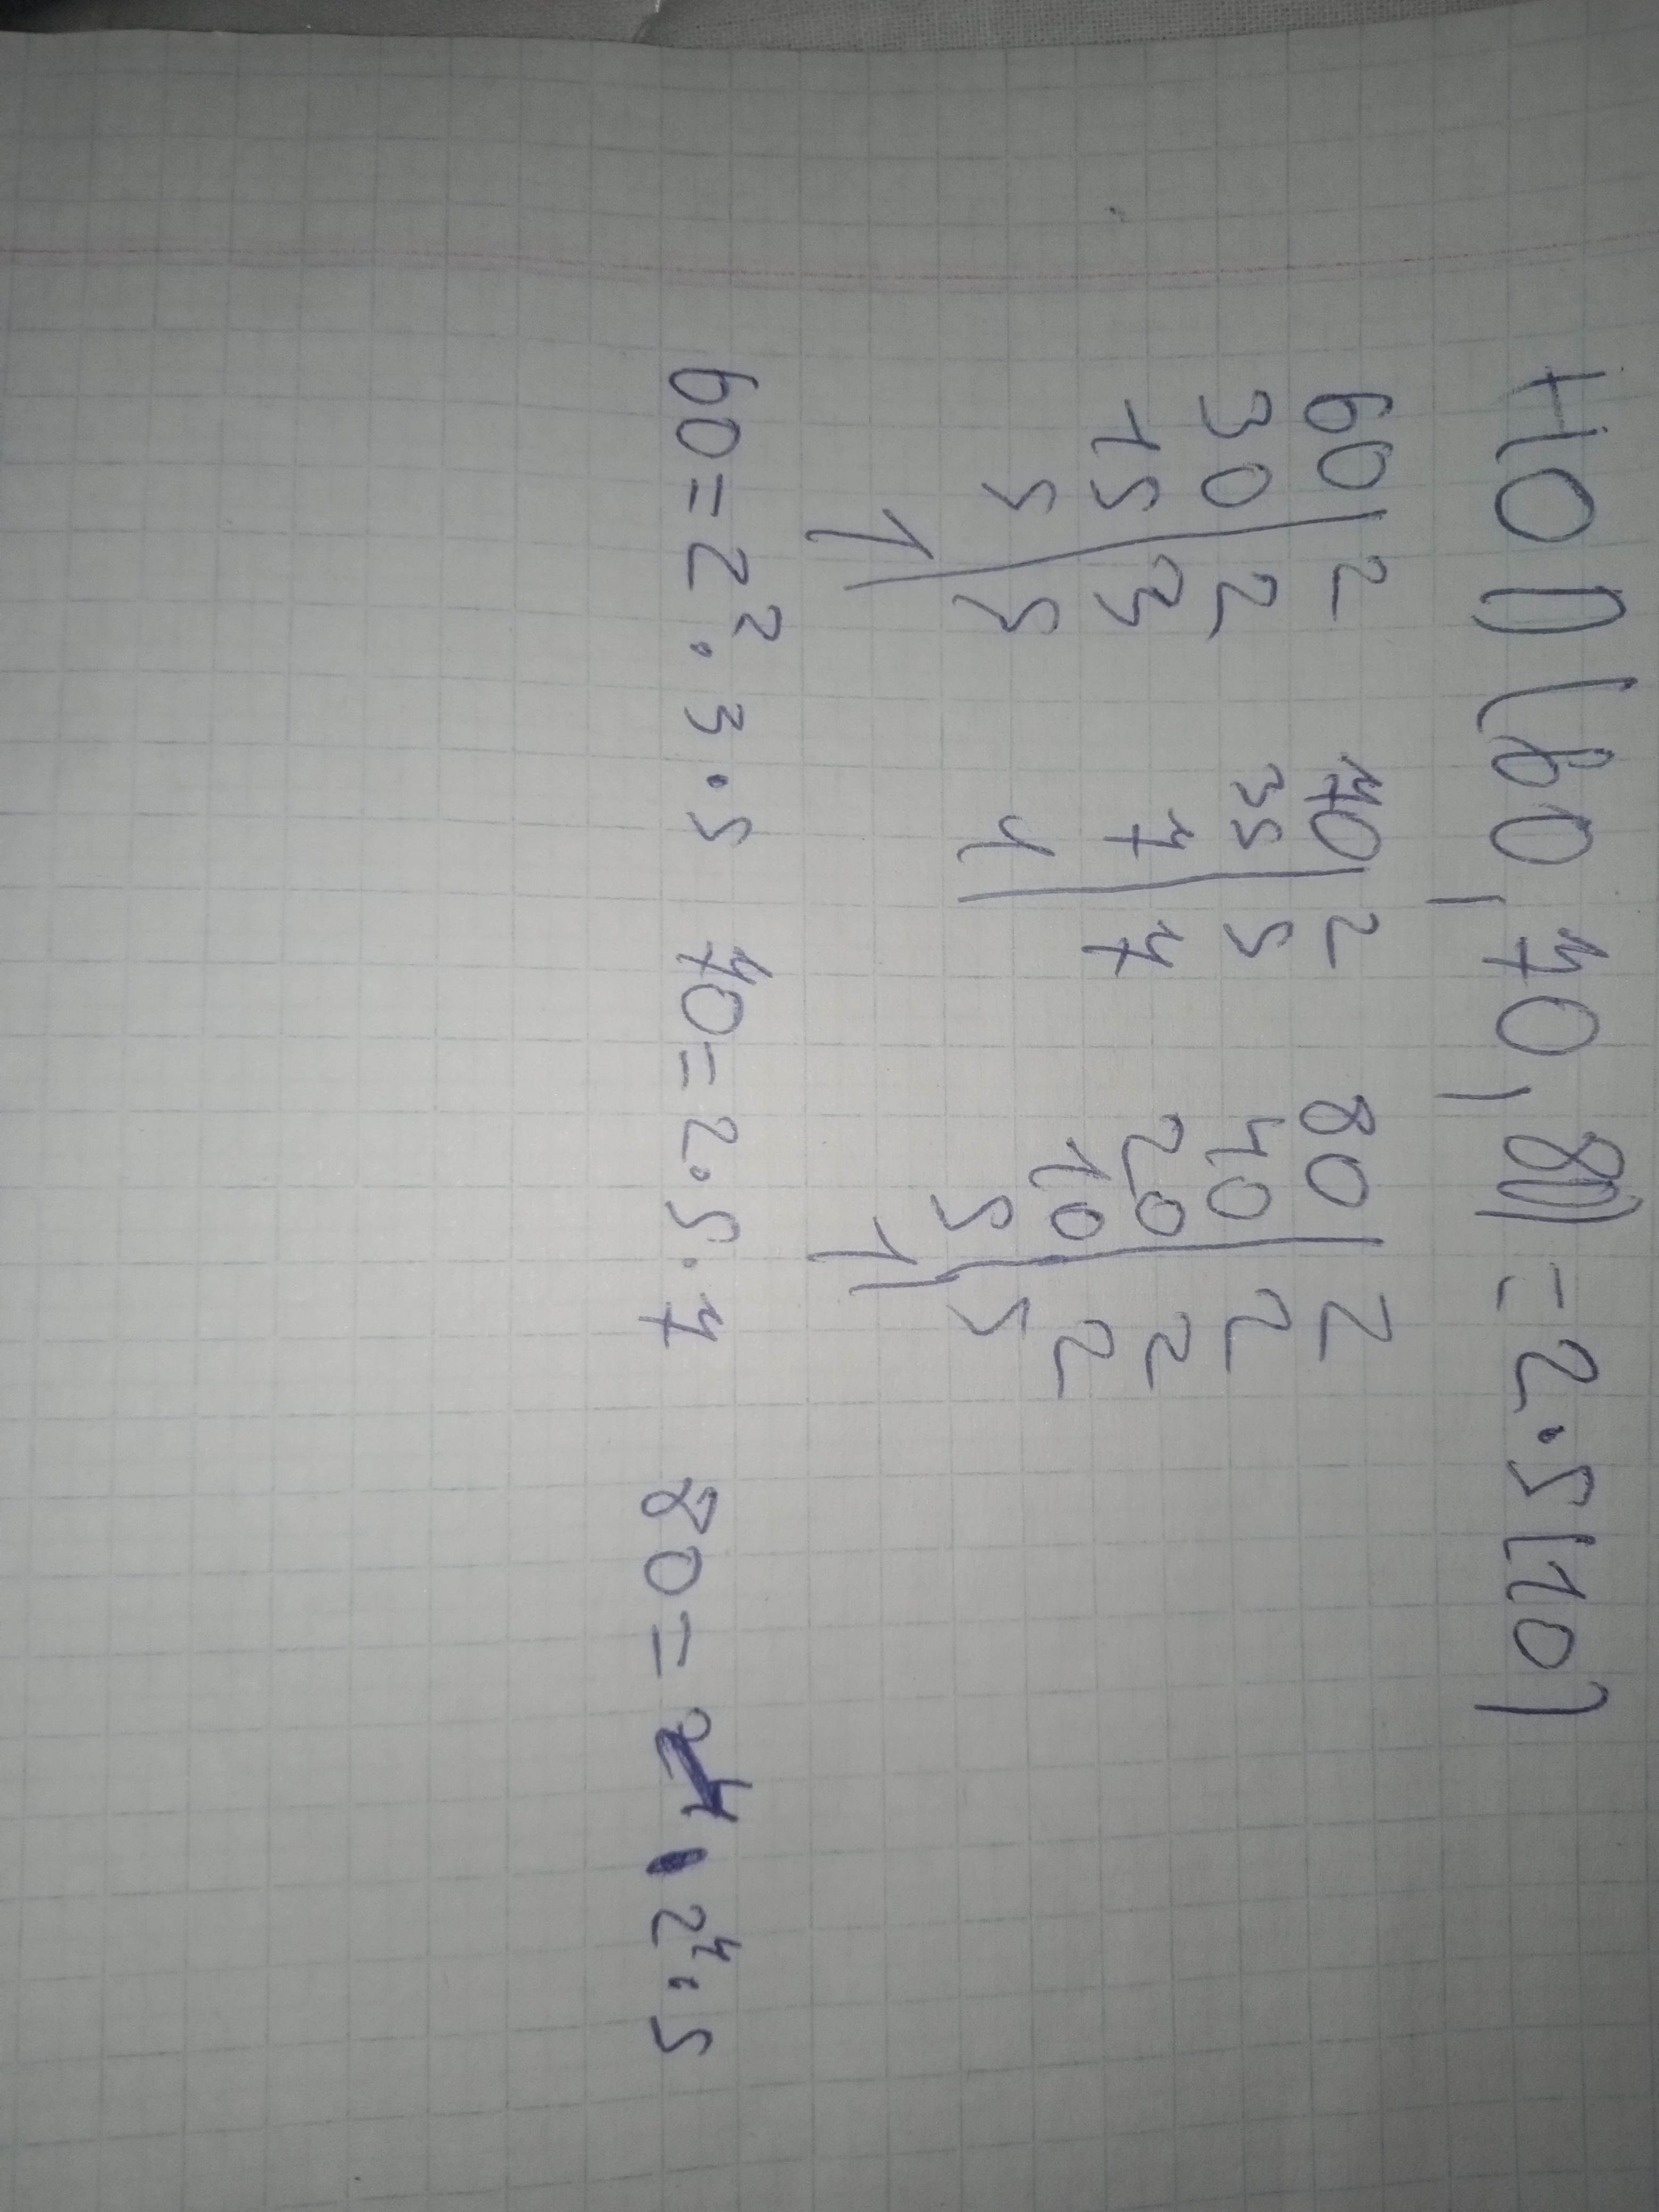 НОД (60, 70, 80) = 2·5 (10)
60 | 2 70 | 2 80 | 2
30 | 2 35 | 5 40 | 2
15 | 3 7 | 7 20 | 2
5 | 5 1 | 10 | 2
1 | 5 | 5
1 |
60 = 2²·3·5 70 = 2·5·7 80 = 2⁴·5